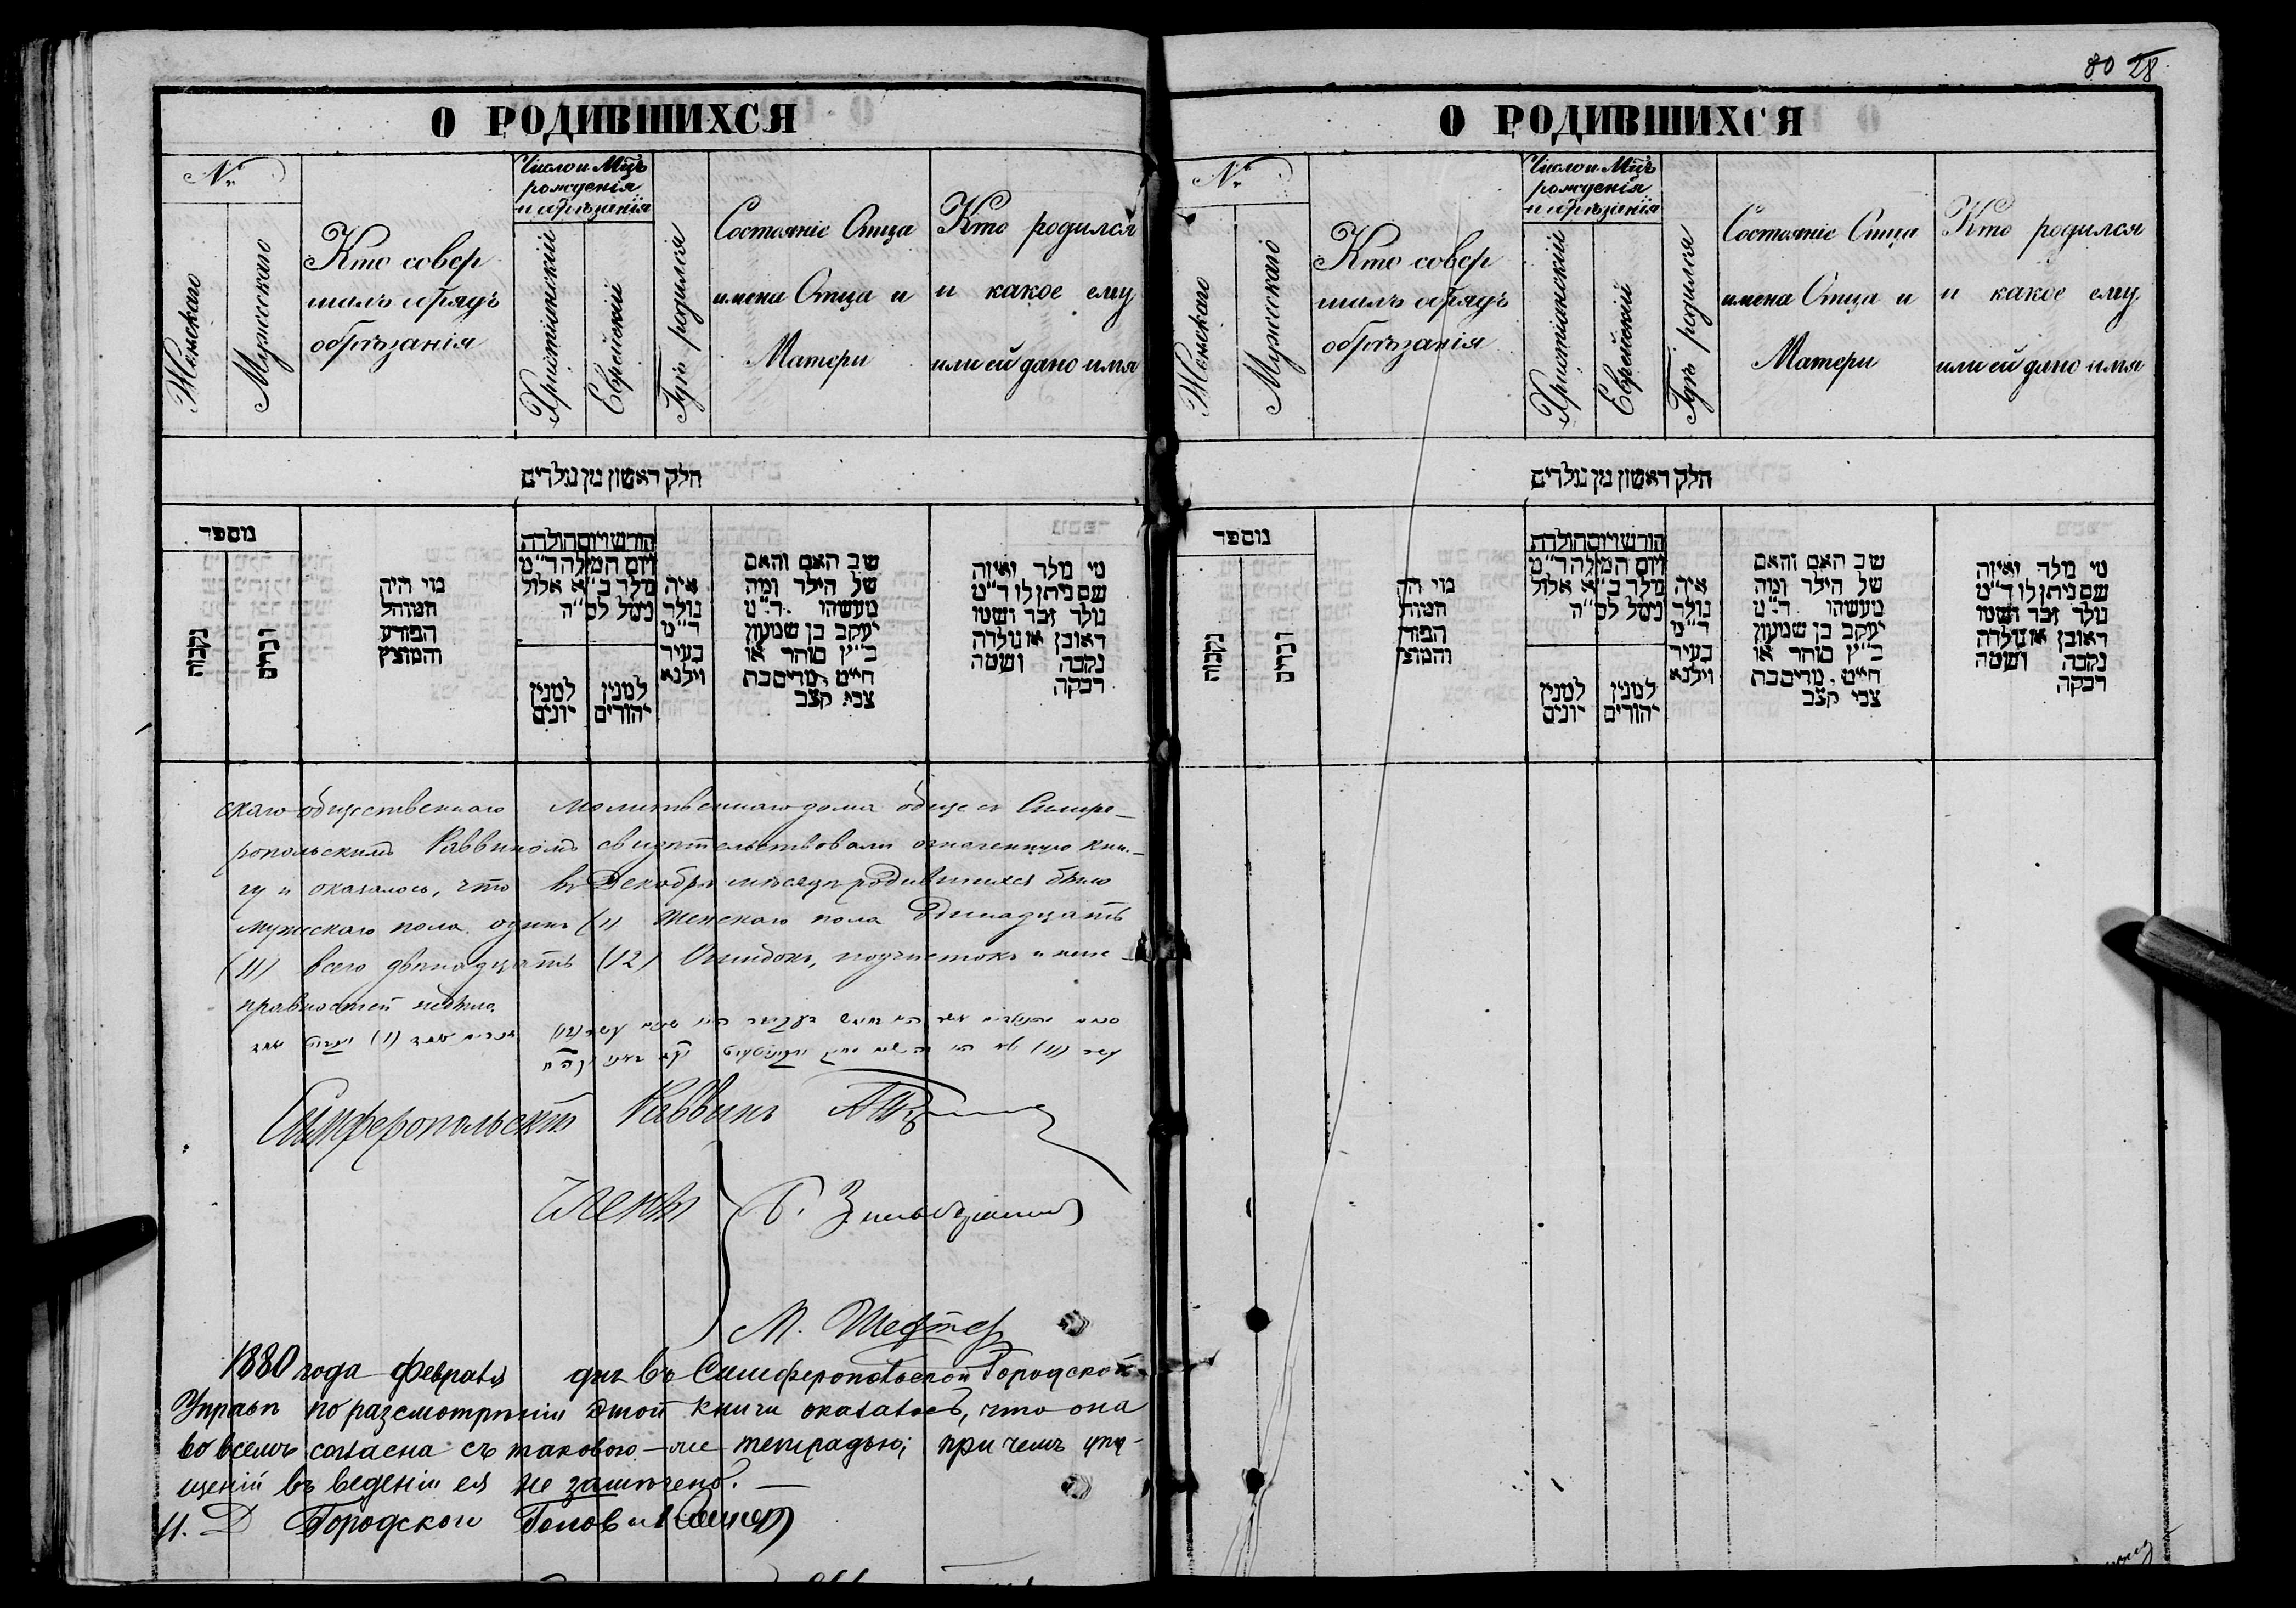 80 28
О РОДИВШИХСЯ
№
Женскаго
Мужескаго
Кто совер
шалъ обрядъ
обрѣзанія
Число и Мцъ
рожденія
и обрѣзанія
Христіанскій
Еврейскій
Гдѣ родился
Состояніе Отца
имена Отца и
Матери
Кто родился
и какое ему
или ей дано имя
חלק ראשון מן נולדים
מספר
נקבות
זכרים
מי היה
המוהל
הפורע
והמוצץ
חודש ויום הולדה
ויום המילה ד״מ
נולד ב״א אלול
נימל לס״ה
למנין
יונים
למנין
יהודים
איה
נולד
ד״מ
בעיר
ווילנא
שב האם והאם
של הילד ומה
מעשהו ד״מ
יעקב בן שמעון
כ״ץ סוחר או
חייט, מרים בת
צבי קצב
מי נולד ואיזה
שם ניתן לו ד״מ
נולד זכר ושמו
ראובן או נולדה
נקבה ושמה
רבקה
скаго общественнаго молитвеннаго дома обще съ Симфе-
ропольскимъ Раввиномъ свидѣтельствовали означенную кни-
гу и оказалось, что въ Декабрѣ мѣсяцѣ родившихся было
мужескаго пола одинъ (1) женскаго пола одинадцать
(11) всего двѣнадцать (12) Ошибокъ, подчистокъ и неис-
правностей небыло.
Симферопольскій Раввинъ
Члены
М. Шефтер
1880 года Февраля дня въ Симферопольской Городской
Управѣ по разсмотрѣніи этой книги оказалось, что она
во всемъ согласна съ таковою-же тетрадью; при чемъ упу-
щеній въ веденіи ея не замѣчено. —
И. Д Городскаго Головы
О РОДИВШИХСЯ
№
Женскаго
Мужескаго
Кто совер
шалъ обрядъ
обрѣзанія
Число и Мцъ
рожденія
и обрѣзанія
Христіанскій
Еврейскій
Гдѣ родился
Состояніе Отца
имена Отца и
Матери
Кто родился
и какое ему
или ей дано имя
חלק ראשון מן נולדים
מספר
נקבות
זכרים
מי הי
המוה
הפור
והמוצ
חודש ויום הולדה
ויום המילה ד״מ
נולד ב״א אלול
נימל לס״ה
למנין
יונים
למנין
יהודים
איה
נולד
ד״מ
בעיר
ווילנא
שב האם והאם
של הילד ומה
מעשהו ד״מ
יעקב בן שמעון
כ״ץ סוחר או
חייט, מרים בת
צבי קצב
מי נולד ואיזה
שם ניתן לו ד״מ
נולד זכר ושמו
ראובן או נולדה
נקבה ושמה
רבקה